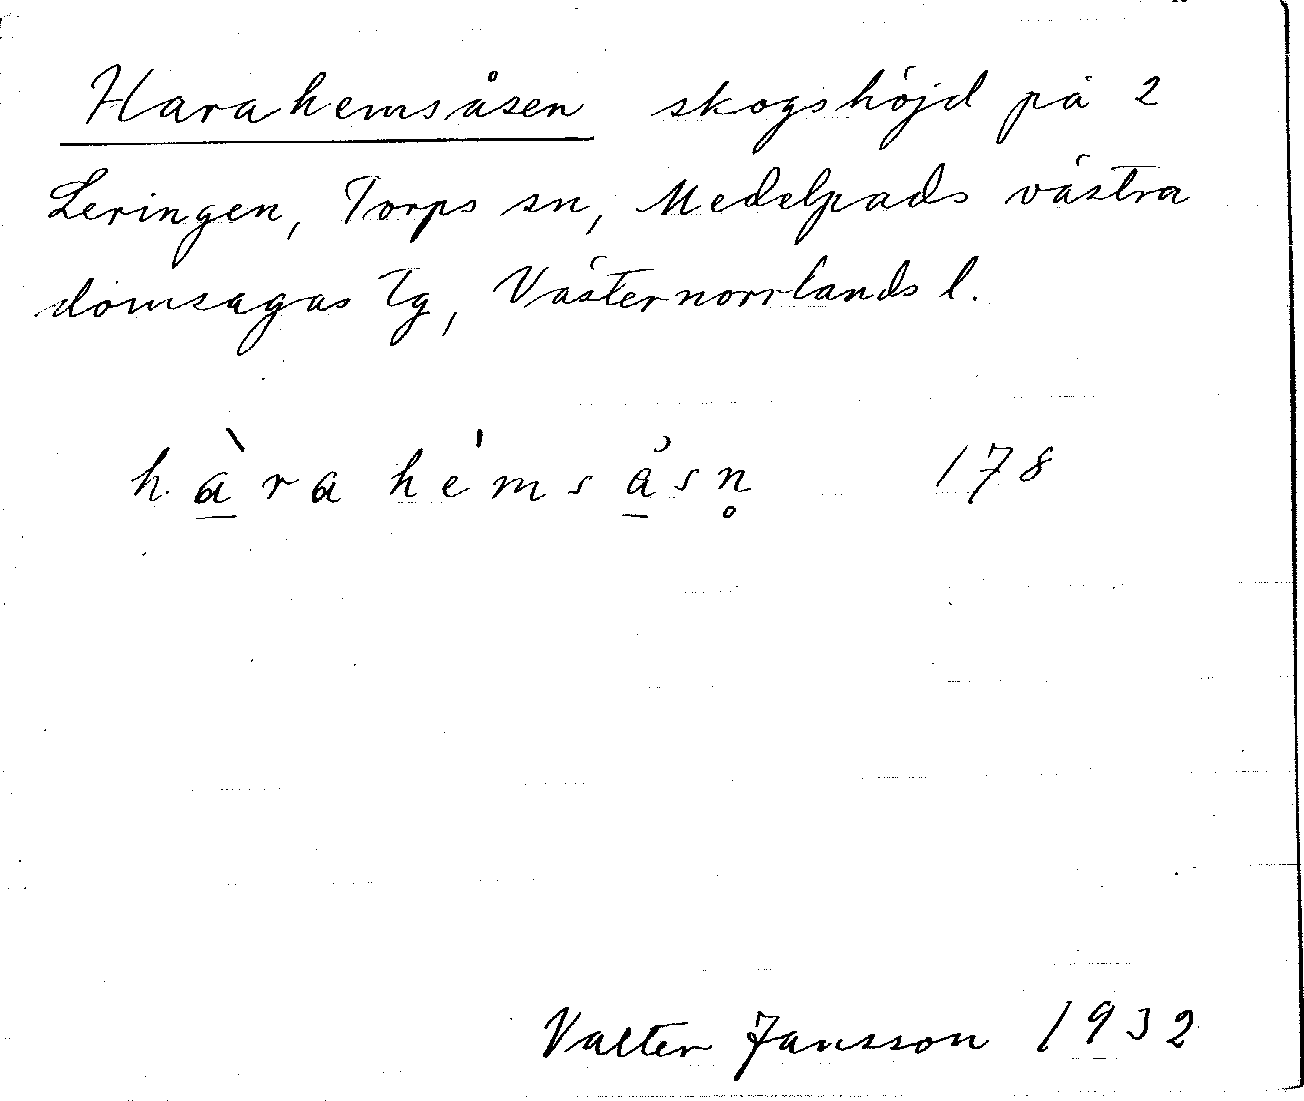 Harahemsåsen skogshöjd på 2
Leringen, Torps sn, Medelpads västra
domsagas Tg, Västernorrlands l.
hà̱ra hémså̱sn̥ 178
Valter Jansson 1932